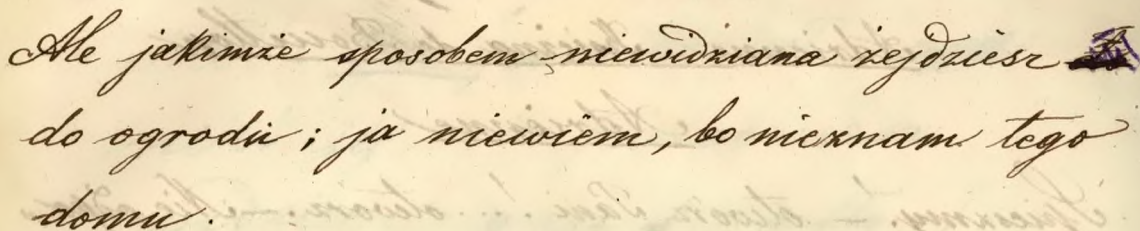 Ale jakimże sposobem niewidziana zejdziesz
do ogrodu; ja niewiem, bo nieznam tego
domu.